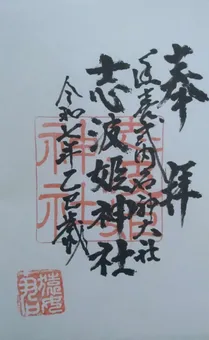 奉拝
延喜式内名神大社
志波姫神社
令和七年乙巳歳